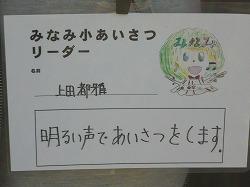 みなみ小あいさつ
リーダー
みなみ
名前
上田都雅
明るい声であいさつをします。